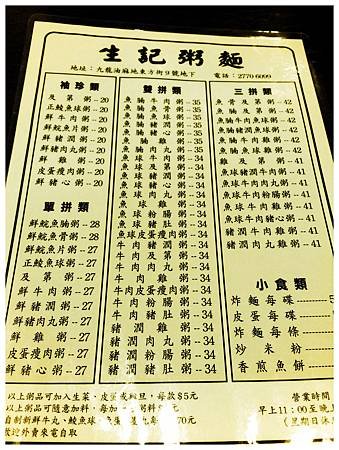 生記粥麵
地址：九龍油麻地東方街9號地下 電話：2770 6099
袖珍類
及第粥--20
正鯪魚球粥--20
鮮牛肉粥--20
鮮鯇魚片粥--20
鮮豬潤粥--20
鮮豬肉丸粥--20
鮮雞粥--20
皮蛋瘦肉粥--20
鮮豬心粥--20
單拼類
鮮鯇魚腩粥--28
鮮鯇魚骨粥--28
鮮鯇魚片粥--27
正鯪魚球粥--27
及第粥--27
鮮牛肉粥--27
鮮豬潤粥--27
鮮豬肉丸粥--27
鮮雞粥--27
皮蛋瘦肉粥--27
鮮豬心粥--27
雙拼類
魚腩牛肉粥--35
魚腩魚球粥--35
魚腩豬潤粥--35
魚腩豬心粥--35
魚腩雞粥--35
魚腩肉丸粥--35
魚球牛肉粥--34
魚球及第粥--34
魚球豬潤粥--34
魚球豬心粥--34
魚球肉丸粥--34
魚球雞粥--34
魚球粉腸粥--34
魚球豬肚粥--34
魚球皮蛋瘦肉粥--34
牛肉豬潤粥--34
牛肉及第粥--34
牛肉肉丸粥--34
牛肉雞粥--34
牛肉皮蛋瘦肉粥--34
牛肉粉腸粥--34
牛肉豬肚粥--34
豬潤雞粥--34
豬潤肉丸粥--34
豬潤粉腸粥--34
豬潤豬心粥--34
三拼類
魚骨及第粥--42
魚腩及第粥--42
魚腩魚球牛肉粥--42
魚腩豬潤魚球粥--42
魚腩牛肉雞粥--42
魚腩魚球雞粥--42
雞及第粥--41
魚球牛肉雞粥--41
魚球豬潤雞粥--41
魚球牛肉肉丸粥--41
魚球牛肉豬心粥--41
魚球肉丸雞粥--41
牛肉豬潤雞粥--41
牛肉豬潤肉丸粥--41
牛肉肉丸雞粥--41
小食類
炸麵每碟
皮蛋每碟
炸麵每條
炒米粉
香煎魚餅
以上粥品可加入生菜、皮蛋或腐旦，每款$5元
以上粥品可隨意加料，每加
自制新鮮牛丸、鯪魚球
歡迎外賣來電自取
營業時間
早上11：00至晚上
（星期日休息